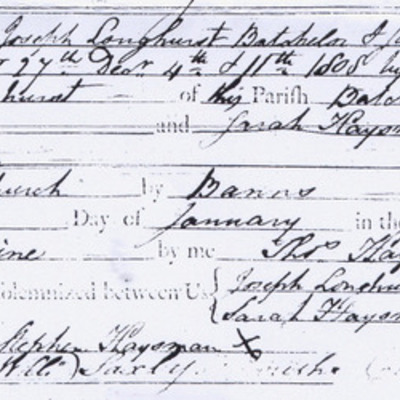 Joseph Longhurst Batchelor & S
27th Decr 4th & 11th 1808 by
hurst of this Parish Batc
and Sarah Haysm
hurch by Banns
Day of January in the
ine by me Thos Hay
Solemnized between Us { Joseph Longhu
{ Sarah Haysm
Stephen Haysman X
Willm Saxby